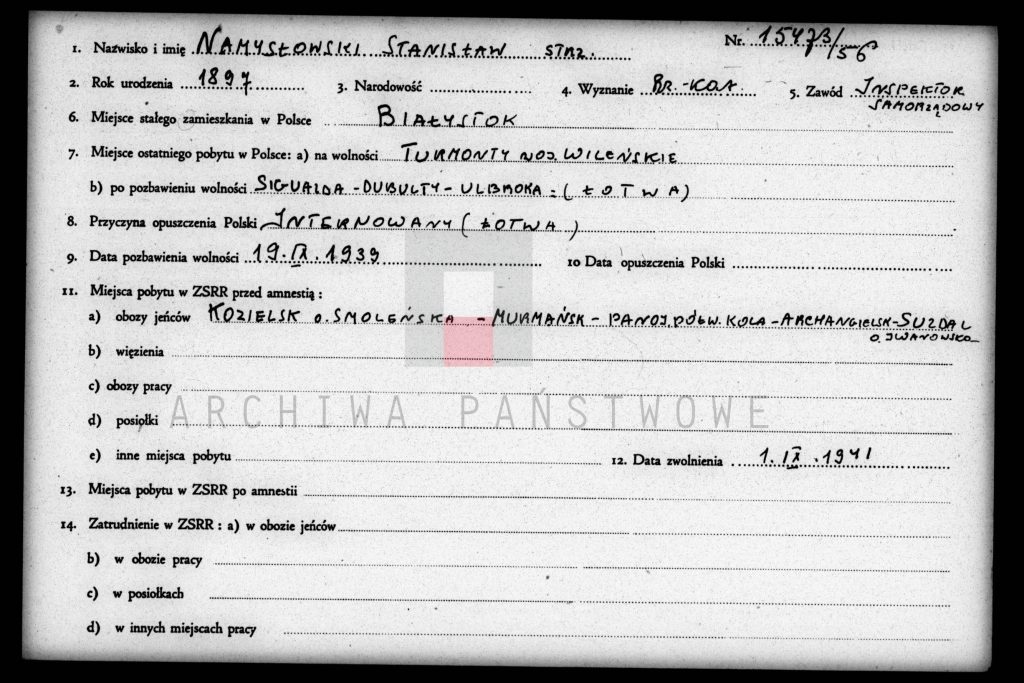 1. Nazwisko i imię NAMYSŁOWSKI STANISŁAW STRZ. Nr. 15473/56
2. Rok urodzenia 1897 3. Narodowość 4. Wyznanie RZ.-KAT. 5. Zawód INSPEKTOR
SAMORZĄDOWY
6. Miejsce stałego zamieszkania w Polsce BIAŁYSTOK
7. Miejsce ostatniego pobytu w Polsce: a) na wolności TURMONTY WOJ. WILEŃSKIE
b) po pozbawieniu wolności SIGUALDA - DUBULTY - ULBROKA - (ŁOTWA)
8. Przyczyna opuszczenia Polski INTERNOWANY (ŁOTWA)
9. Data pozbawienia wolności 19.IX.1939 10 Data opuszczenia Polski
11. Miejsca pobytu w ZSRR przed amnestią:
a) obozy jeńców KOZIELSK O. SMOLEŃSKA - MURMAŃSK - PANOJ. PÓŁW. KOLA - ARCHANGIELSK - SUZDAL
O. IWANOWSKA
b) więzienia
c) obozy pracy
ARCHIWA PAŃSTWOWE
d) posiołki
e) inne miejsca pobytu 12. Data zwolnienia 1.IX.1941
13. Miejsca pobytu w ZSRR po amnestii
14. Zatrudnienie w ZSRR: a) w obozie jeńców
b) w obozie pracy
c) w posiołkach
d) w innych miejscach pracy